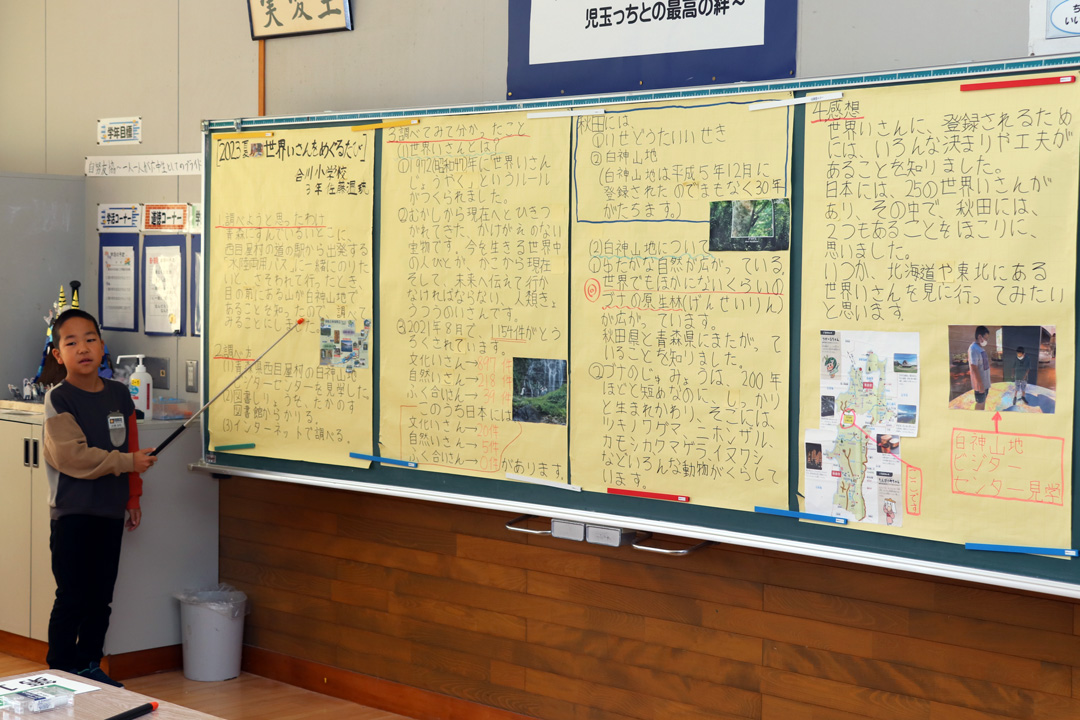 実変生
児玉っちとの最高の絆～
学年目標
学活コーナー
道徳コーナー
世界いさんをめぐるたび
合川小学校
3年 佐藤
1 調べようと思ったわけ
青森にすんでいるいとこに、
西目屋村の道の駅から出発する
水陸両用バスに一緒にのりた
いと、さそわれて行ったとき、
目の前にある山が白神山地で
あることを知ったので、調べて
みることにしました。
2.調べ方
(1)青森県西目屋村の白神山地
ビジターセンターを見学した。
(2)図書しりょうを、たかのす
図書館からかりる。
(3)インターネットで調べる。
3.調べてみて分かったこと
(1)世界いさんとは?
①1972(昭和47)年に世界いさん
じょうやく、というルール
がつくられました。
②むかしから現在へとひきつ
がれてきた、かけがえのない
宝物です。今を生きる世界中
の人びとが、かこから現在
そして、未来へ伝えて行か
なければならない、人類きょ
うつうの宝物です。
③2021年8月で、1154件がとう
ろくされています。
文化いさん→
自然いさん→
ふく合いさん→
このうち日本には
文化いさん→20件
自然いさん→5件
ふく合いさん→0件があります。
秋田には
①
②白神山地
(白神山地は平成5年12月に
登録されたのでまもなく30年
がたちます。)
(2)白神山地について
①ゆたかな自然が広がっている。
世界でもほかにないくらいの
ブナの原生林(げんせいりん)
が広がっています。
秋田県と青森県にまたがって
いることを知りました。
②ブナのじゅみょうは、200年
ほどと短めなのに、しっかり
と生まれかわり、そこには、
ツキノワグマ、ニホンザル、
カモシカ、クマゲラ、イヌワシ
などいろんな動物がくらして
います。
4.感想
世界いさんに、登録されるため
には、いろんな決まりや工夫が
あることを知りました。
日本には、25の世界いさんが
あり、その中で、秋田には、
2つもあることをほこりに、
思いました。
いつか、北海道や東北にある
世界いさんを見に行ってみたい
と思います
ここです
白神山地
ビジター
センター見学